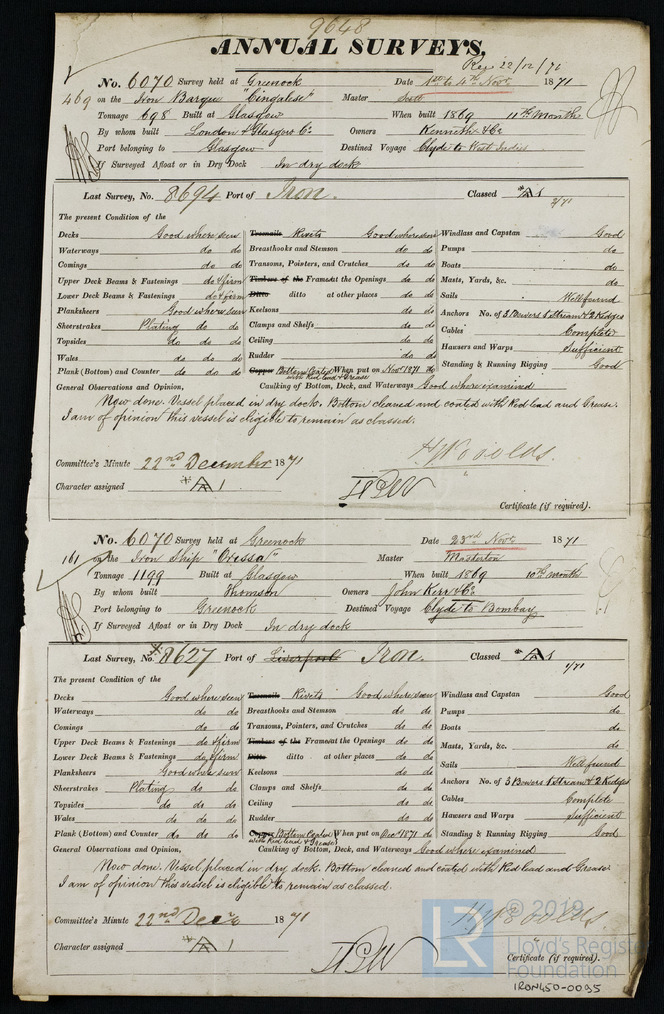 9648
ANNUAL SURVEYS.
Rec 22/12/71
No. 6070 Survey held at Greenock Date 1st to 4th Novr. 1871
469 on the Iron Barque "Cingalese" Master Scott
Tonnage 698 Built at Glasgow When built 1869 11th Month
By whom built London & Glasgow Co. Owners Kenneth & Co
Port belonging to Glasgow Destined Voyage Clyde to West Indies
If Surveyed Afloat or in Dry Dock In dry dock
Last Survey, No. 8694 Port of Iron. Classed A1
9/71
The present Condition of the
Decks Good where seen Treenails Rivets Good where seen Windlass and Capstan Good
Waterways do do Breasthooks and Stemson do do Pumps do
Comings do do Transoms, Pointers, and Crutches do do Boats do
Upper Deck Beams & Fastenings do & firm Timbers of the Frames at the Openings do do Masts, Yards, &c. do
Lower Deck Beams & Fastenings do & firm Ditto ditto at other places do do Sails Well found
Planksheers Good where seen Keelsons do do Anchors No. of 3 Bowers 1 Stream & 2 Kedges
Sheerstrakes Plating do do Clamps and Shelfs do do Cables Complete
Topsides do do do Ceiling do do Hawsers and Warps Sufficient
Wales do do do Rudder do do Standing & Running Rigging Good
Plank (Bottom) and Counter do do do Copper Bottom Coated with Red lead & Grease When put on Novr 1871 do
General Observations and Opinion, Caulking of Bottom, Deck, and Waterways Good where examined
Now done. Vessel placed in dry dock. Bottom cleaned and coated with Red lead and Grease.
I am of opinion this vessel is eligible to remain as classed.
Committee's Minute 22nd December 1871
Character assigned A1
Certificate (if required).
No. 6070 Survey held at Greenock Date 23rd Novr. 1871
161 on the Iron Ship "Orissa" Master Masterton
Tonnage 1199 Built at Glasgow When built 1869 10th month
By whom built Thomson Owners John Kerr & Co
Port belonging to Greenock Destined Voyage Clyde to Bombay
If Surveyed Afloat or in Dry Dock In dry dock
Last Survey, No. 8627 Port of Liverpool Iron. Classed A1
1/71
The present Condition of the
Decks Good where seen Treenails Rivets Good where seen Windlass and Capstan Good
Waterways do do Breasthooks and Stemson do do Pumps do
Comings do do Transoms, Pointers, and Crutches do do Boats do
Upper Deck Beams & Fastenings do & firm Timbers of the Frames at the Openings do do Masts, Yards, &c. do
Lower Deck Beams & Fastenings do & firm Ditto ditto at other places do do Sails Well found
Planksheers Good where seen Keelsons do do Anchors No. of 3 Bowers 1 Stream & 2 Kedges
Sheerstrakes Plating do do Clamps and Shelfs do do Cables Complete
Topsides do do do Ceiling do do Hawsers and Warps Sufficient
Wales do do do Rudder do do Standing & Running Rigging Good
Plank (Bottom) and Counter do do do Copper Bottom Coated with Red lead & Grease When put on Dec 1871 do
General Observations and Opinion, Caulking of Bottom, Deck, and Waterways Good where examined
Now done. Vessel placed in dry dock. Bottom cleaned and coated with Red lead and Grease.
I am of opinion this vessel is eligible to remain as classed.
Committee's Minute 22nd Decr 1871
Character assigned A1
Certificate (if required).
© 2019
LR Lloyd's Register
Foundation
IRON450-0095